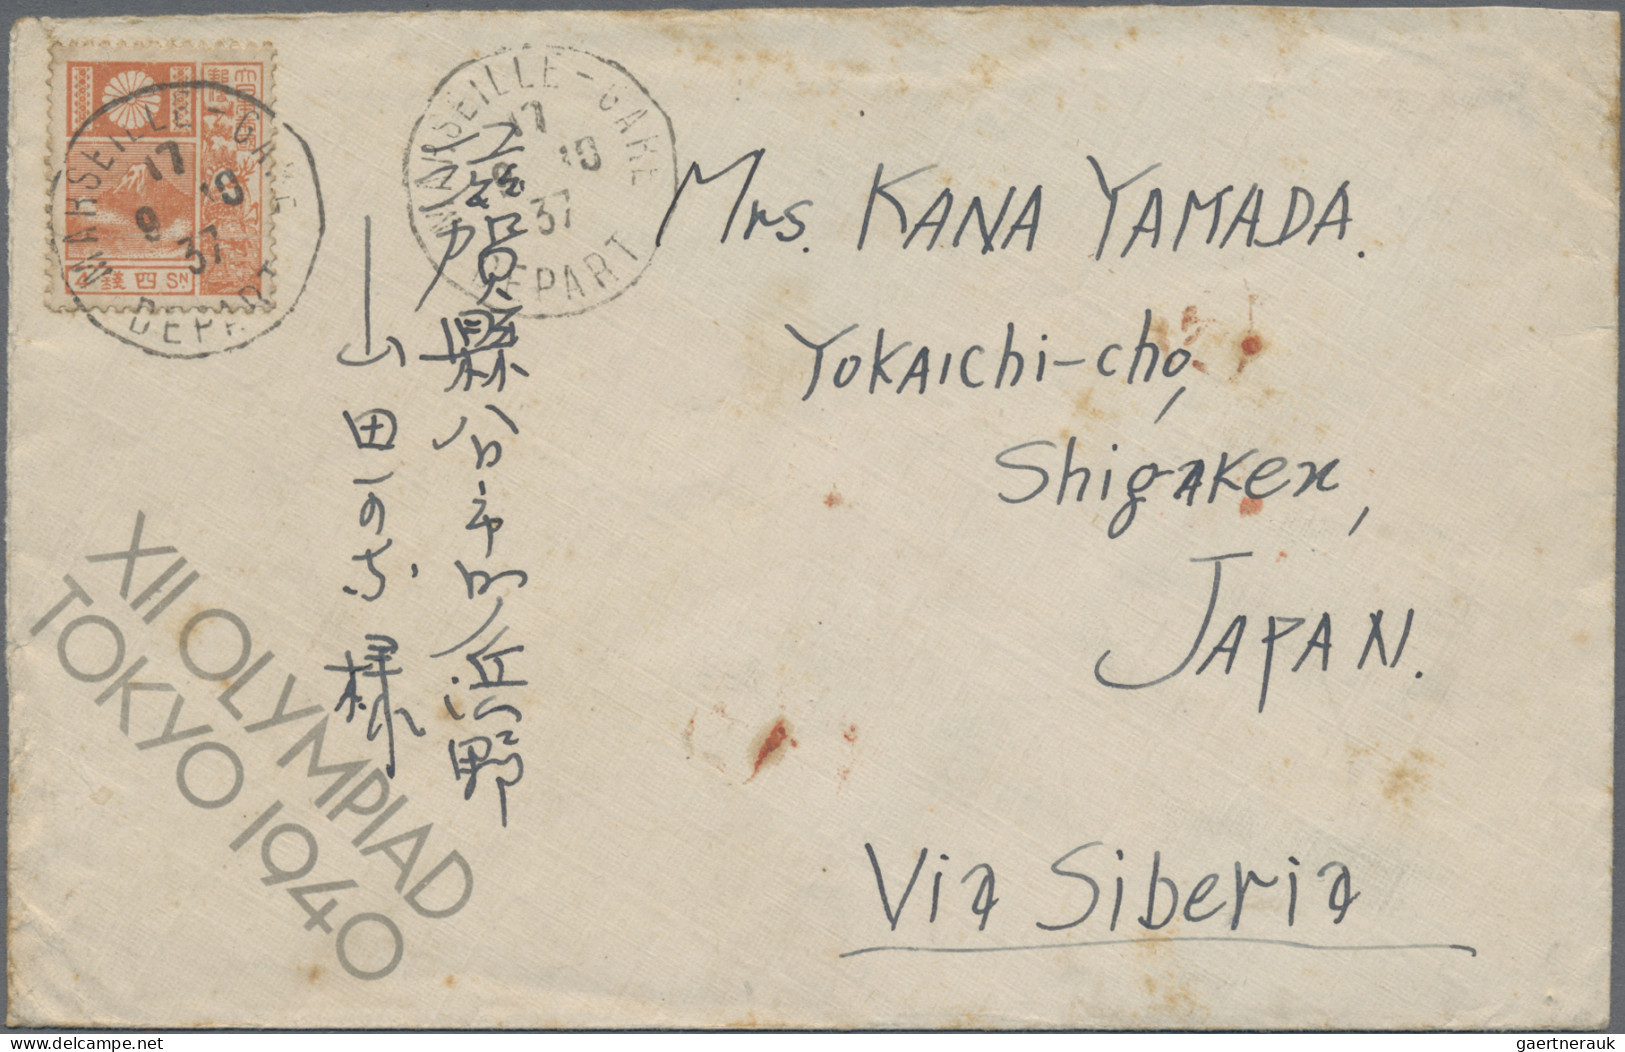 MARSEILLE-GARE
17 10
9 37
DEPART
四錢 SN
MARSEILLE-GARE
17 10
37
DEPART
滋賀縣八日市町浜野
山田かな様
Mrs. KANA YAMADA.
YOKAICHI-cho,
ShigaKen,
JAPAN.
Via Siberia
XII OLYMPIAD
TOKYO 1940
gaertnerauk